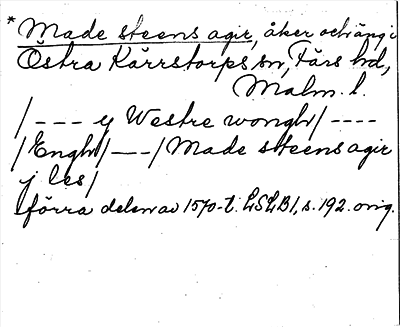 * Made steens agir, åker och äng i
Östra Kärrstorps sn, Färs hd,
Malm. l.
/ - - - y Westre wongh/ - - - -
/Enghf/ - - - / Made steens agir
j les/
förra delen av 1570-t. LSLB1, s. 192. orig.